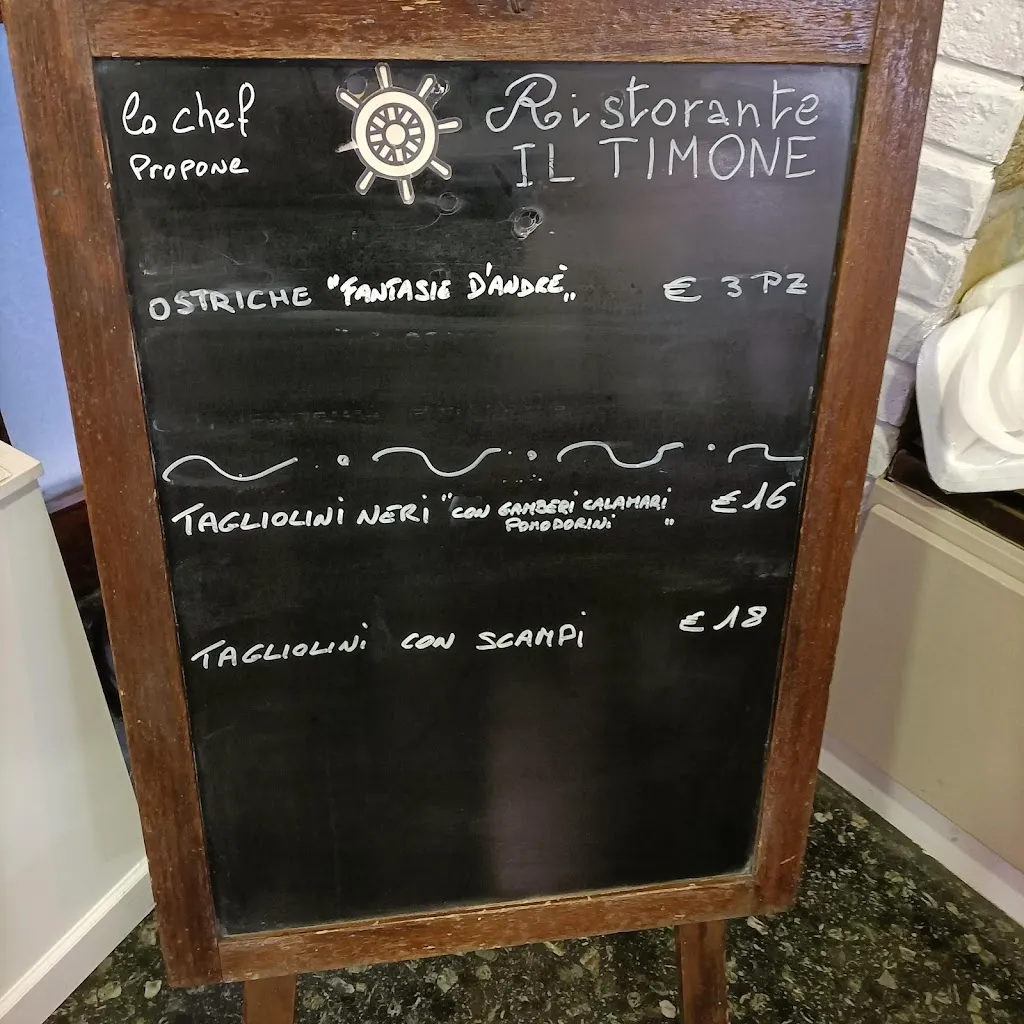 lo chef
PROPONE
Ristorante
IL TIMONE
OSTRICHE "FANTASIE D'ANDRÈ„ € 3 PZ
TAGLIOLINI NERI "CON GAMBERI CALAMARI € 16
POMODORINI "
TAGLIOLINI CON SCAMPI € 18